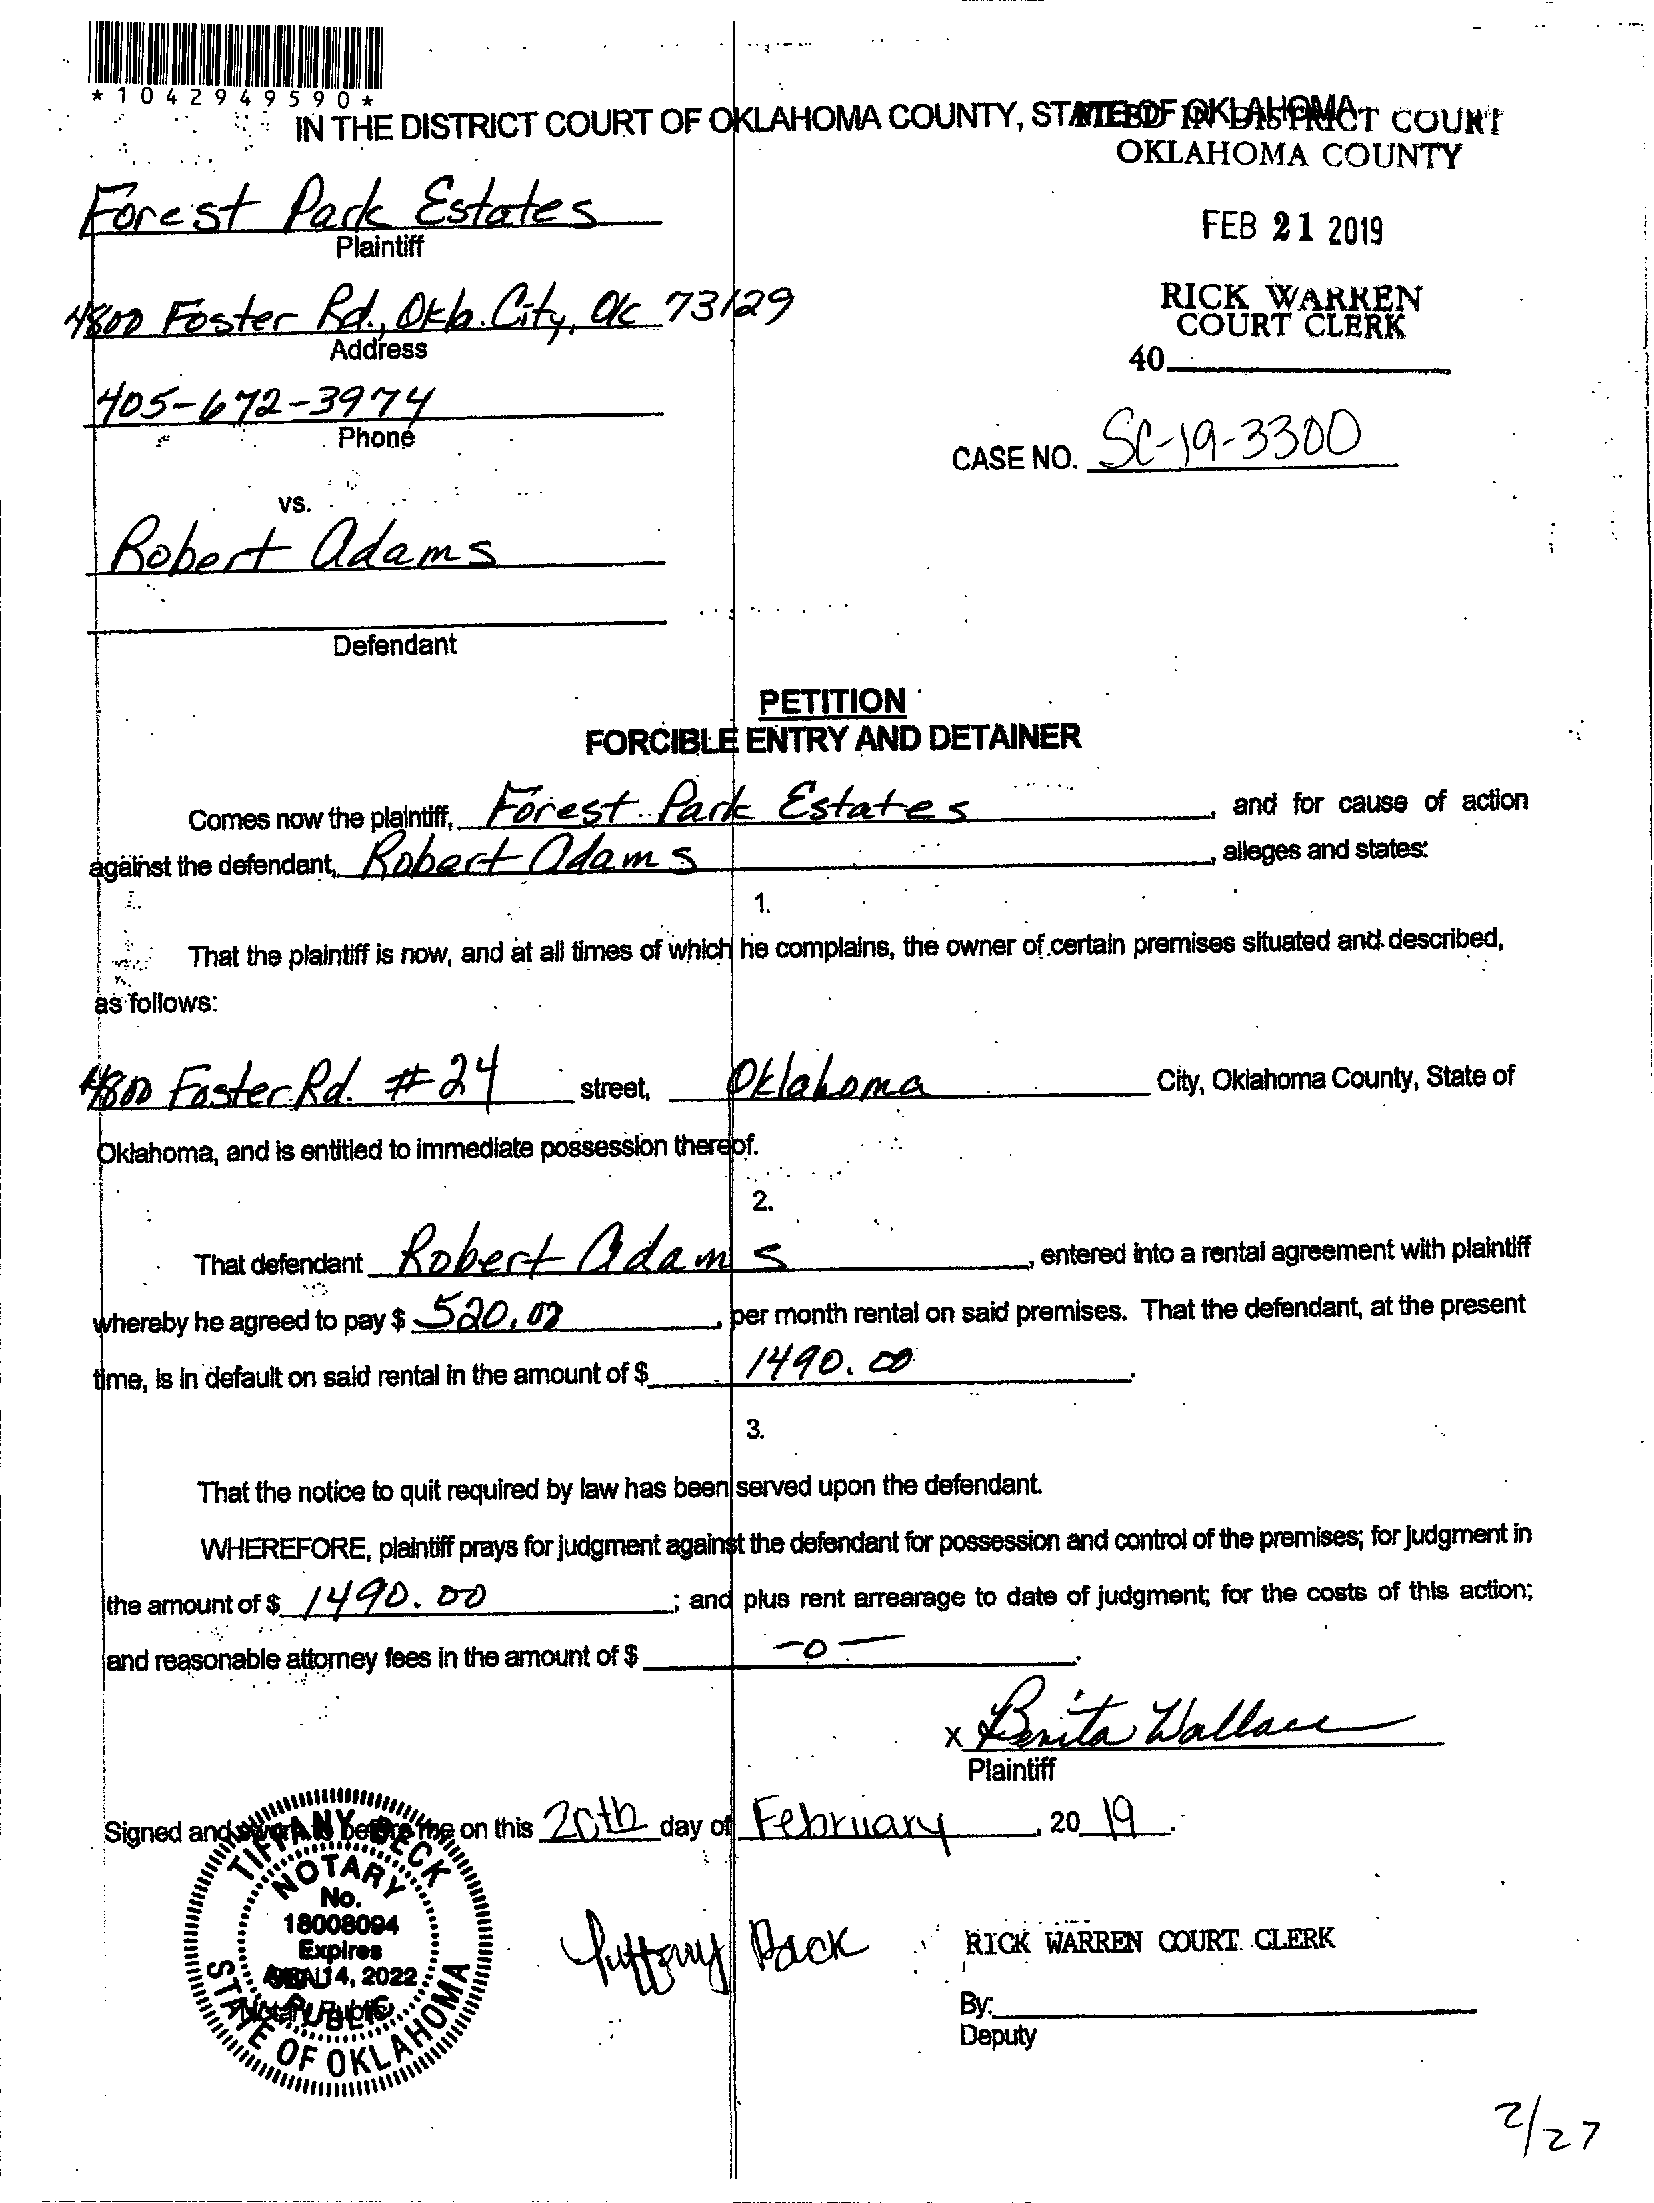 *1042949590*
IN THE DISTRICT COURT OF OKLAHOMA COUNTY, STATE OF OKLAHOMA
FILED IN DISTRICT COURT
OKLAHOMA COUNTY
Forest Park Estates
Plaintiff
FEB 21 2019
4800 Foster Rd., Okla. City, Ok 73129
Address
RICK WARREN
COURT CLERK
40
405-672-3974
Phone
CASE NO. SC-19-3300
vs.
Robert Adams
Defendant
PETITION
FORCIBLE ENTRY AND DETAINER
Comes now the plaintiff, Forest Park Estates, and for cause of action
against the defendant, Robert Adams, alleges and states:
1.
That the plaintiff is now, and at all times of which he complains, the owner of certain premises situated and described,
as follows:
4800 Foster Rd. #24 street, Oklahoma City, Oklahoma County, State of
Oklahoma, and is entitled to immediate possession thereof.
2.
That defendant Robert Adams, entered into a rental agreement with plaintiff
whereby he agreed to pay $ 520.00, per month rental on said premises. That the defendant, at the present
time, is in default on said rental in the amount of $ 1490.00.
3.
That the notice to quit required by law has been served upon the defendant.
WHEREFORE, plaintiff prays for judgment against the defendant for possession and control of the premises; for judgment in
the amount of $ 1490.00; and plus rent arrearage to date of judgment; for the costs of this action;
and reasonable attorney fees in the amount of $ -0-.
x Benita Wallace
Plaintiff
Signed and sworn to before me on this 20th day of February, 2019.
TIFFANY BECK
NOTARY
No.
18008094
Expires
14, 2022
PUBLIC
STATE OF OKLAHOMA
Notary Public
Tiffany Beck
RICK WARREN COURT CLERK
By:
Deputy
2/27